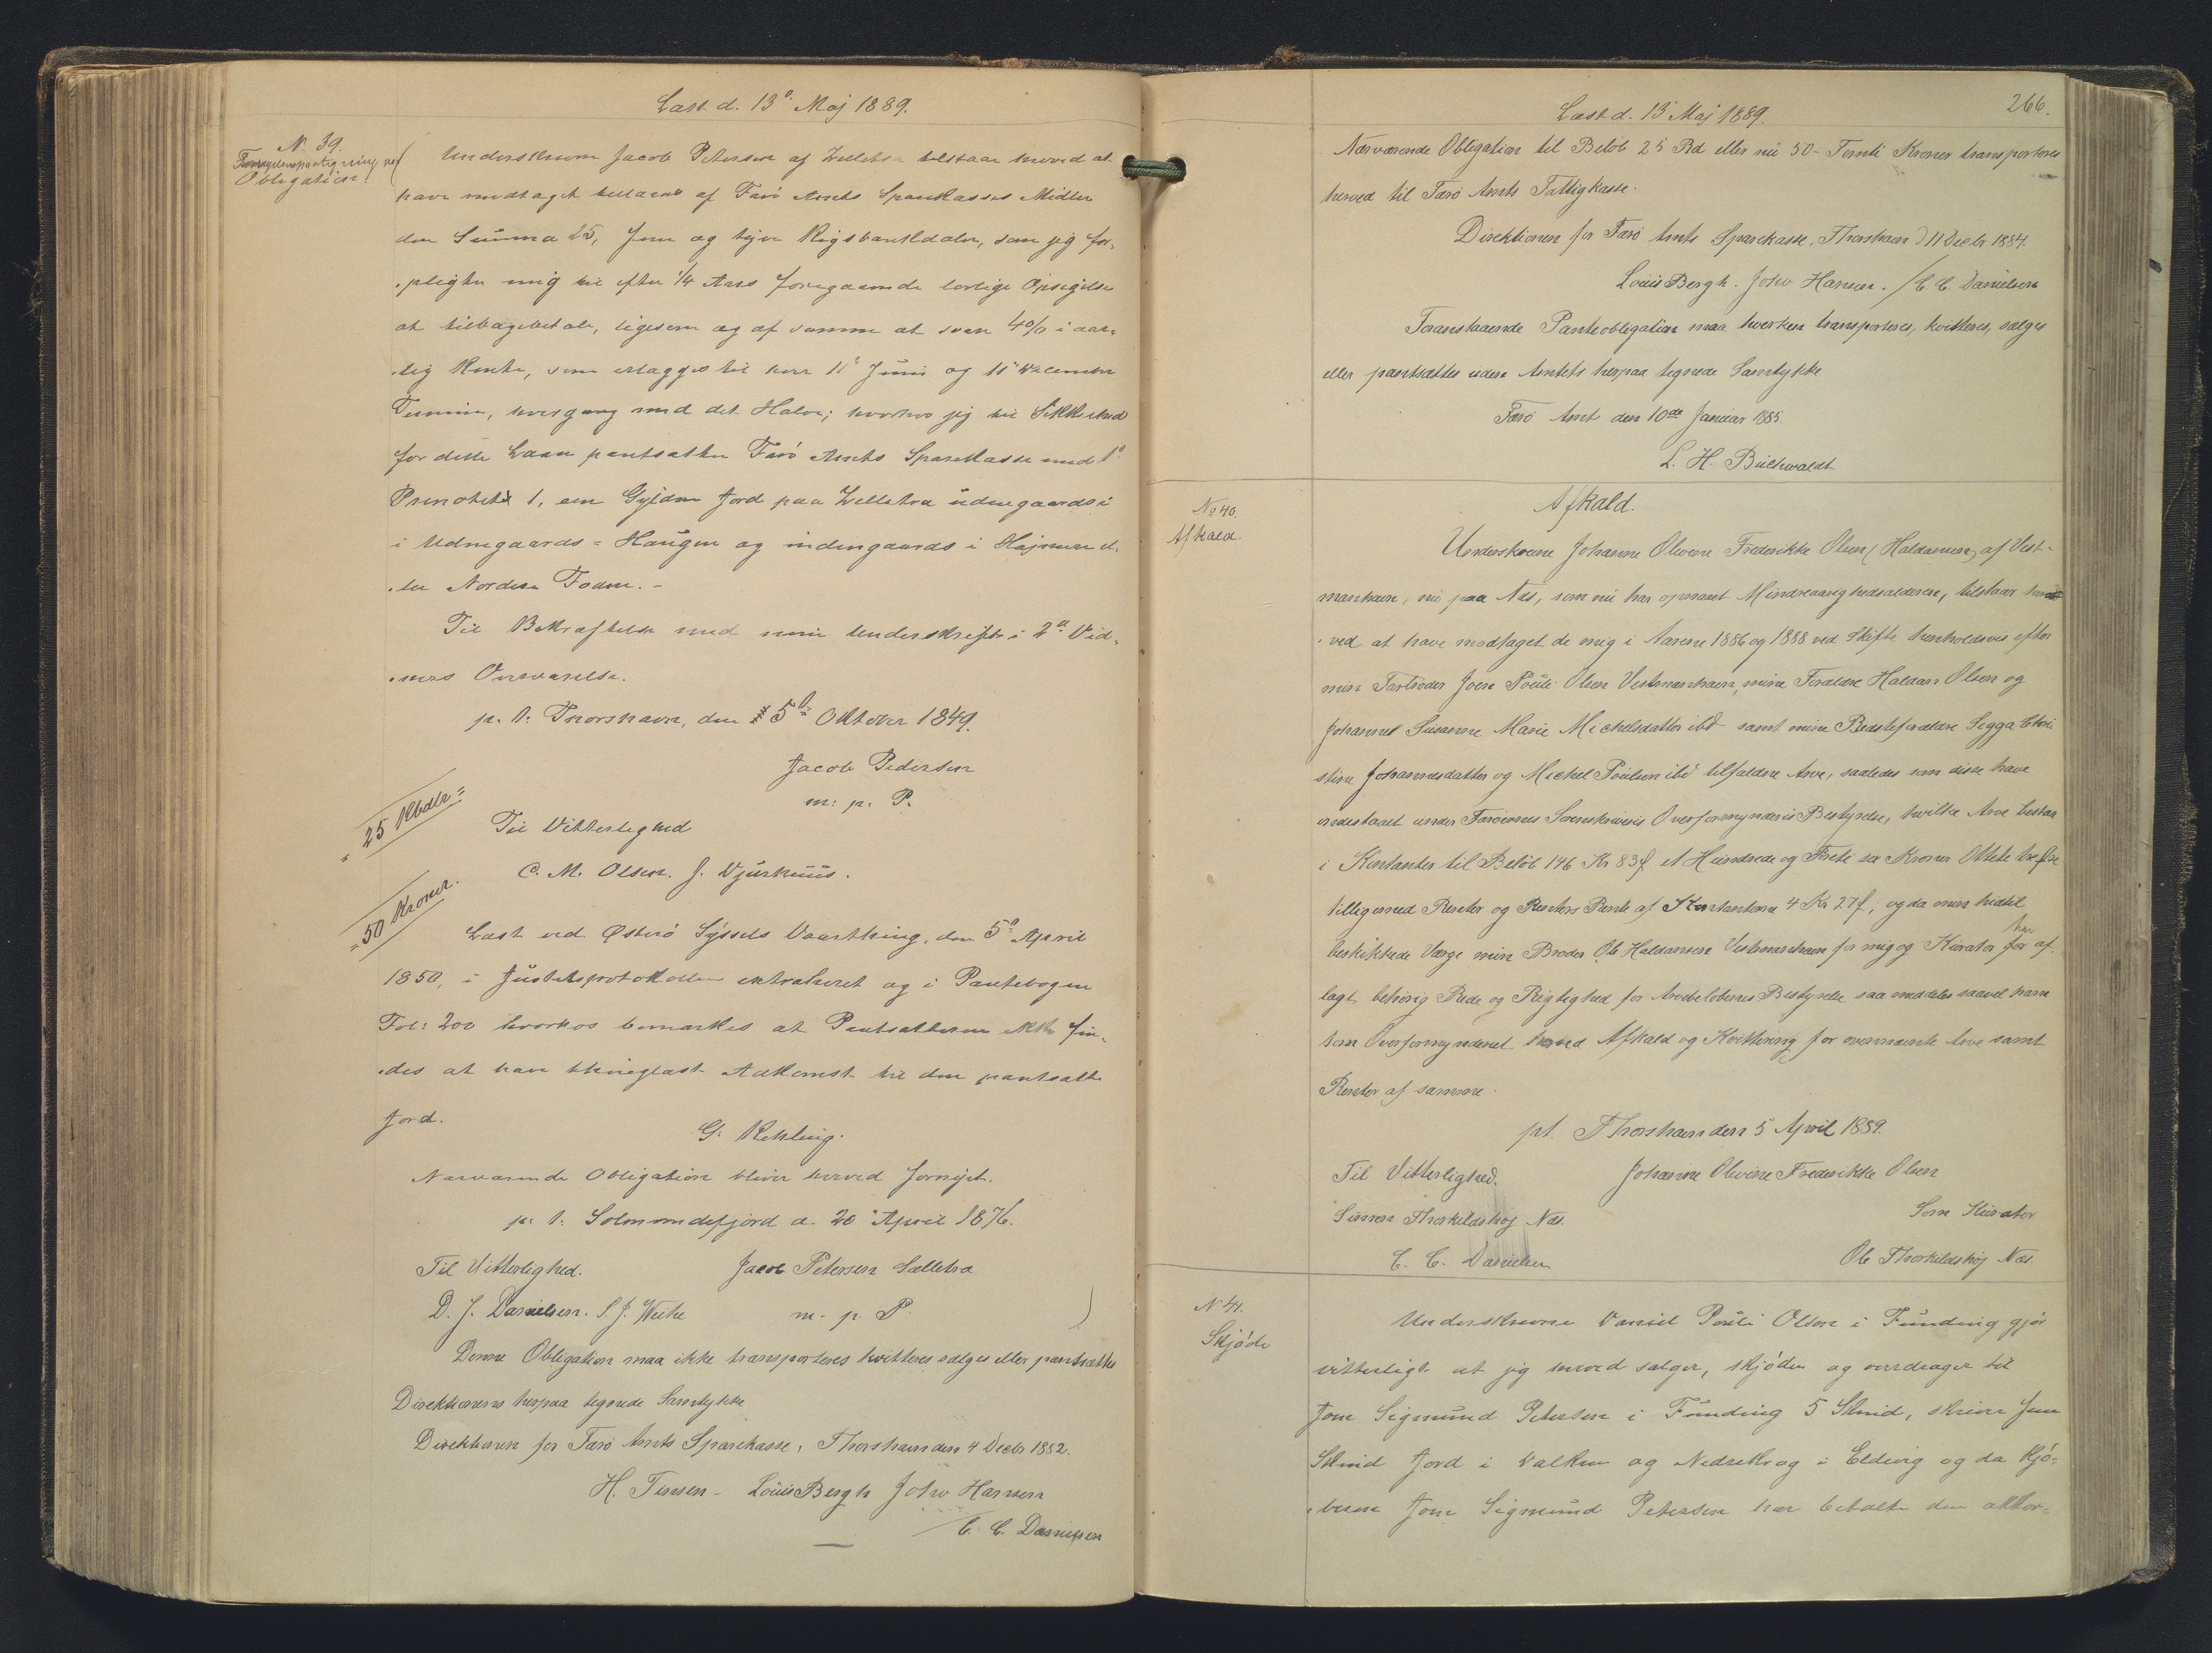 Læst d. 13d Maj 1889.
N. 39.
Obligation.
Underskrevne Jacob Petersen af Selletra tilstaar herved at
have modtaget tillaans af Færö Amts Sparekasses Midler
den Summa 25, fem og tyve Rigsbankdaler, som jeg for-
pligter mig til efter 1/4 Aars foregaaende lovlige Opsigelse
at tilbagebetale, ligesom og af samme at svare 4 0/0 i aar-
lig Rente, som erlægges til hver 11 Juni og 11 December
Termin, hver gang med det Halve; hvorhos jeg til Sikkerhed
for dette Laan pantsætter Færö Amts Sparekasse med 1ste
Prioritet 1, een Gylden Jord paa Selletra udengaards i
i Udengaards-Haugen og indengaards i Højmere el-
ler Nordre Toden.-
Til Bekræftelse med min Underskrift i 2de Vid-
ners Overværelse.
p. t. Thorshavn, den 5te Oktober 1849.
Jacob Pedersen
m. p. P.
= 25 Rbdlr =
Til Vitterlighed
C. M. Olsen. J. Djurhuus.
= 50 Kroner.
Læst ved Østerö Sýssels Vaarthing, den 5te April
1850, i Justitsprotokollen extraheret og i Pantebogen
Fol: 200 hvorhos bemærkes at Pantsætteren ikke fin-
des at have thinglæst Adkomst til den pantsatte
Jord.
G. Röhling.
Nærværende Obligation bliver herved fornyet.
p. t. Solmundefjord d. 20 April 1876.
Til Vitterlighed.
Jacob Petersen Selletra
D. J. Danielsen. S. J. Weihe
m. p. P.
Denne Obligation maa ikke transporteres kvitteres sælges eller pantsættes
Direktionens herpaa tegnede Samtykke
Direktionen for Færö Amts Sparekasse, Thorshavn den 4 Decbr 1882.
H. Tinsen - Louis Bergh John Hansen
/ C. C. Danielsen
Læst d. 13 Maj 1889.
266.
Nærværende Obligation til Belöb 25 Rd eller nu 50- Femti Kroner transporteres
herved til Færö Amts Fattigkasse.
Direktionen for Færö Amts Sparekasse, Thorshavn d 11 Decbr 1884.
Louis Bergh. John Hansen. / C. C. Danielsen
Foranstaaende Panteobligation maa hverken transporteres, kvitteres, sælges
eller pantsættes uden Amtets herpaa tegnede Samtykke
Færö Amt den 10de Januar 1885.
L. H. Buchwaldt
No 40.
Afkald.
Afkald.
Underskrevne Johanne Olevine Frederikke Olsen (Haldansen) af Vest-
manhavn, nu paa Næs, som nu har opnaaet Mindreaarighedsalderen, tilstaar her-
ved at have modtaget de mig i Aarene 1886 og 1888 ved Skifte henholdsvis efter
min Farbroder Joen Pouli Olsen Vestmanhavn, mine Forældre Haldan Olsen og
Johanne Susanne Marie Michelsdatter ibd samt mine Bedsteforældre Sigga Chri-
stine Johannesdatter og Michel Poulsen ibd tilfaldne Arve, saaledes som disse have
indestaaet under Færöernes Sorenskriveris Overformynderis Bestyrelse, hvilke Arve bestaa
i Kontanter til Belöb 146 Kr 83 f. et Hundrede og Firti sex Kroner Otteti tre öre
tilligemed Renter og Renters Rente af Kontanterne 4 Kr 27 f, og da min hidtil
beskikkede Værge min Broder Ole Haldansen Vestmanhavn for mig og Kurator har for af-
lagt behørig Rede og Rigtighed for Arvebelöbenes Bestyrelse saa meddeles saavel ham
som Overformynderiet herved Afkald og Kvittering for ovennævnte Arve samt
Renter af samme.
pt. Thorshavn den 5 April 1889.
Til Vitterlighed.
Johanne Olevine Frederikke Olsen
Simon Thorkildshöj Næs.
Som Kurator
C. C. Danielsen
Ole Thorkildshöj Næs.
N 41.
Skjöde
Underskrevne Daniel Pouli Olsen i Funding gjör
vitterligt at jeg herved sælger, skjöder og overdrager til
Joen Sigmund Petersen i Funding 5 Skind, skriver fem
Skind Jord i Valken og Nedrekrog i Eldevig og da Kjö-
beren Joen Sigmund Petersen har betalt den akkor-